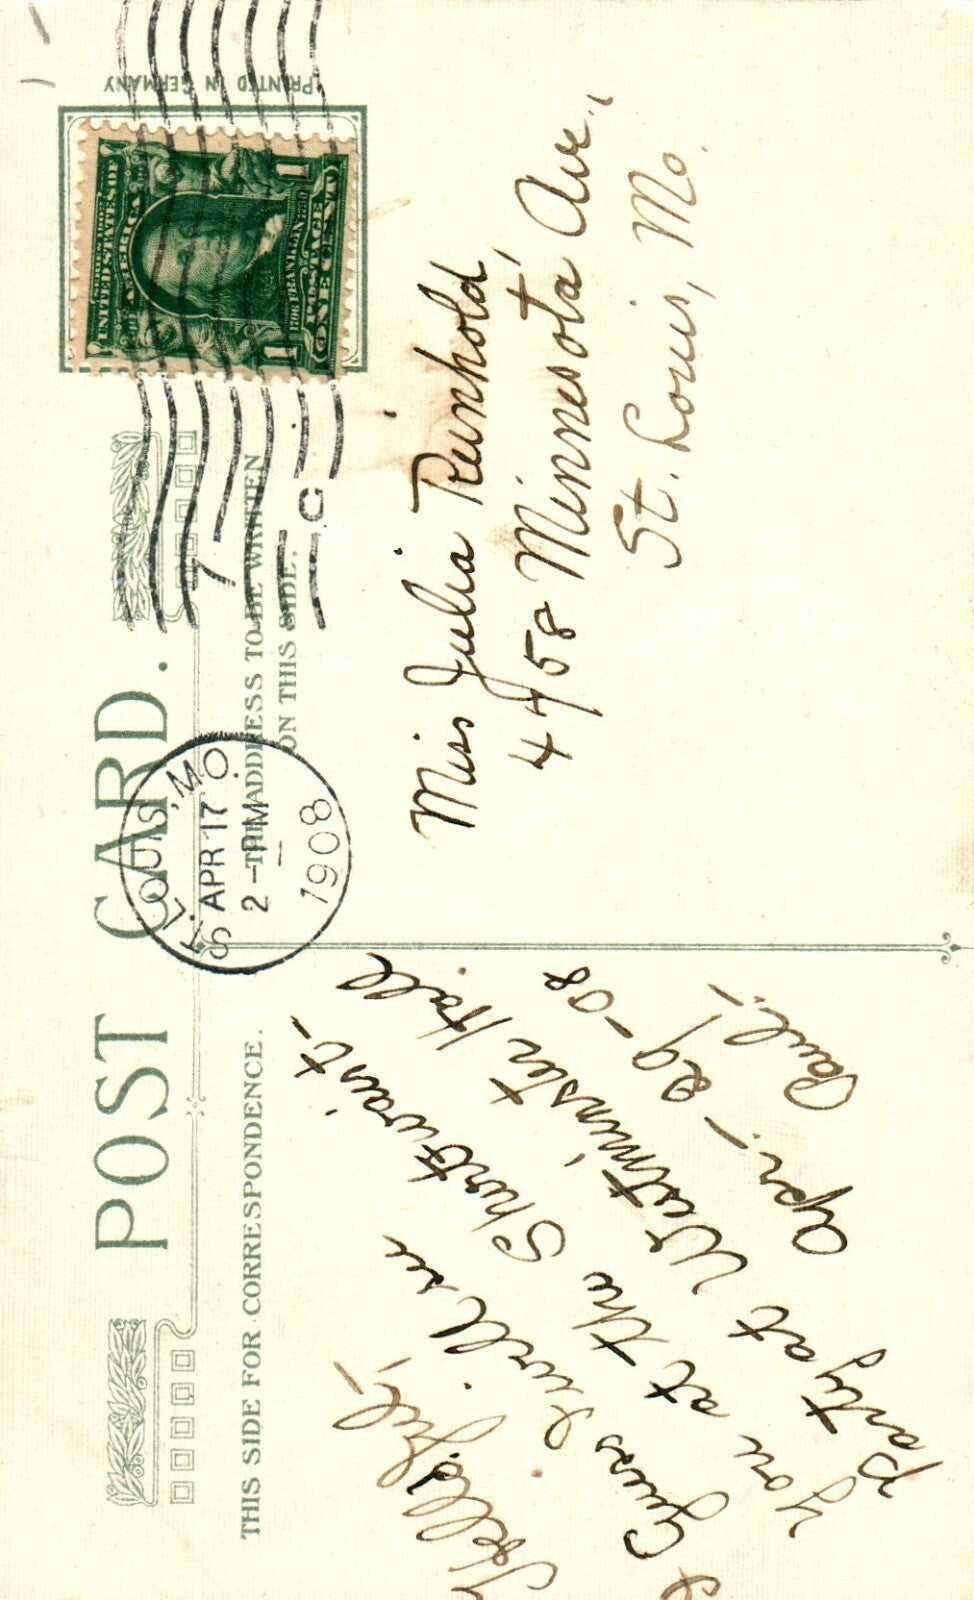 POST CARD.
THIS SIDE FOR CORRESPONDENCE.
THE ADDRESS TO BE WRITTEN
ON THIS SIDE.
PRINTED IN GERMANY
SERIES 1902
UNITED STATES OF
AMERICA
1706 FRANKLIN 1790
POSTAGE
1 ONE CENT 1
ST. LOUIS, MO.
APR 17
2 - PM
1908
C
Hello Jul,-
I Guess I will see
you at the Shirtwaist-
party at Westminster Hall
Apr. 29-08
Paul.-
Miss Julia Reinhold
4458 Minnesota Ave.,
St. Louis, Mo.